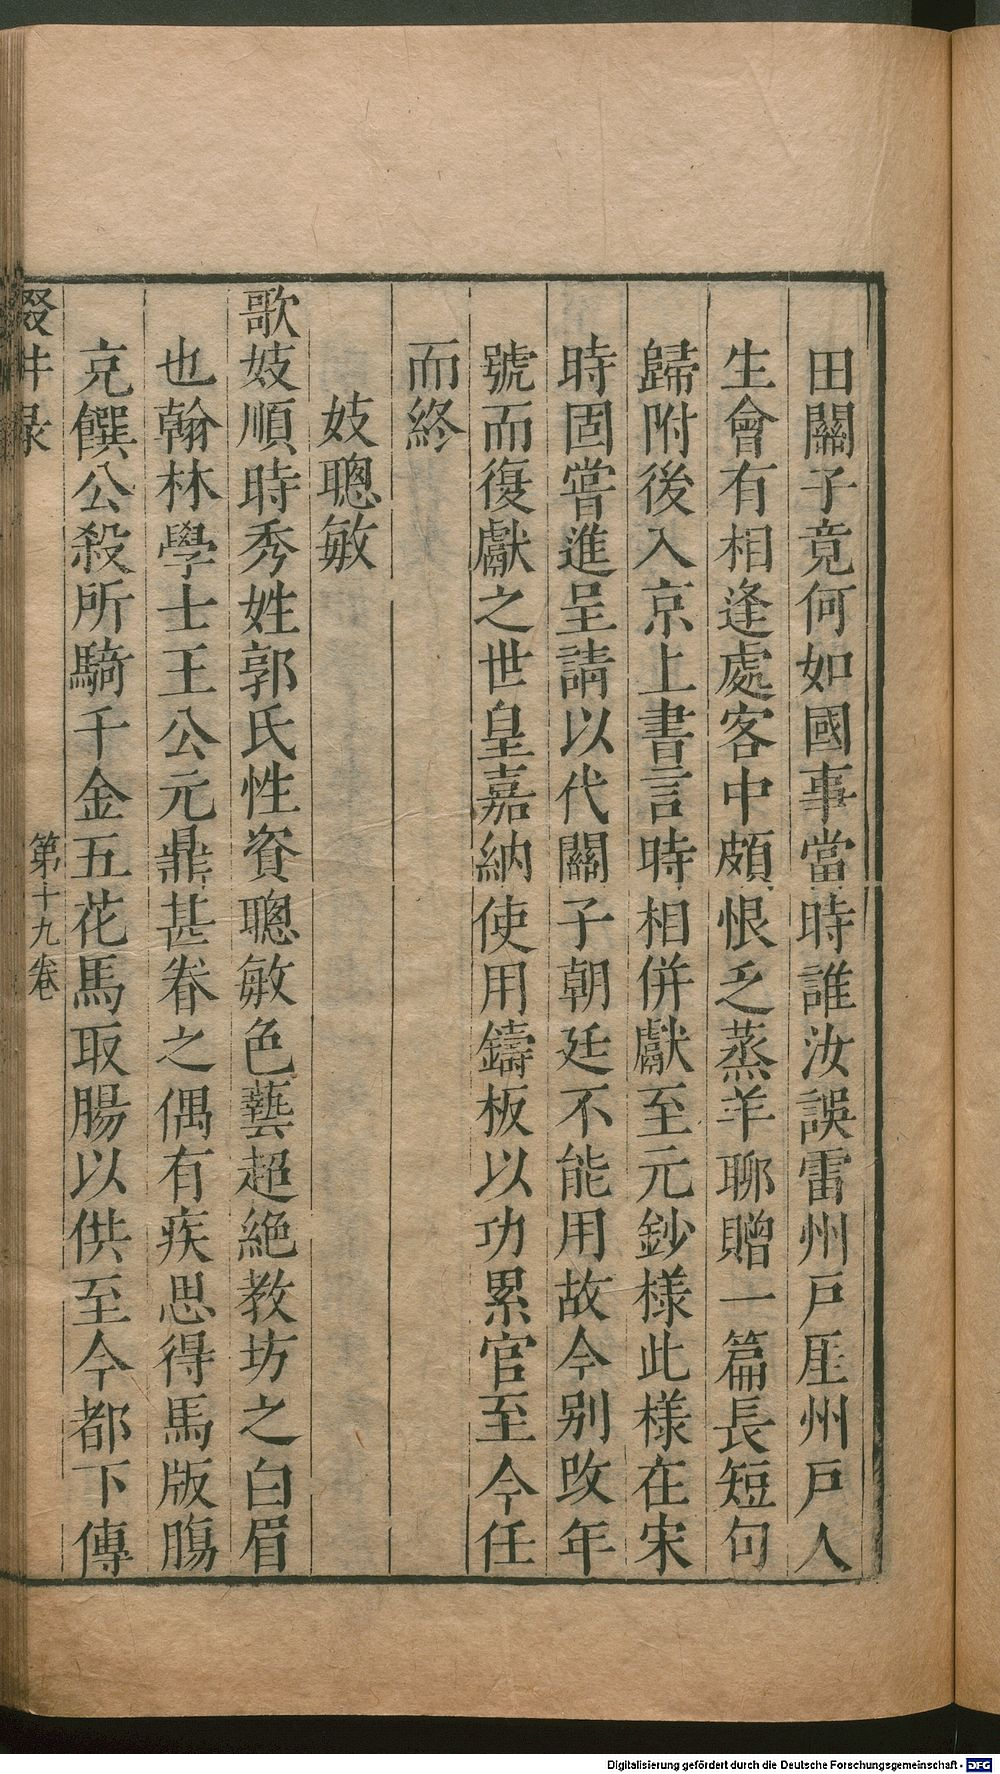 田關子竟何如國事當時誰汝誤雷州戶厓州戶人
生會有相逢處客中頗恨乏蒸羊聊贈一篇長短句
歸附後入京上書言時相併獻至元鈔樣此樣在宋
時固嘗進呈請以代關子朝廷不能用故今别改年
號而復獻之世皇嘉納使用鑄板以功累官至今任
而終
妓聰敏
歌妓順時秀姓郭氏性資聰敏色藝超絶教坊之白眉
也翰林學士王公元鼎甚眷之偶有疾思得馬版腸
充饌公殺所騎千金五花馬取腸以供至今都下傳
輟畊录
第十九卷
Digitalisierung gefördert durch die Deutsche Forschungsgemeinschaft - DFG